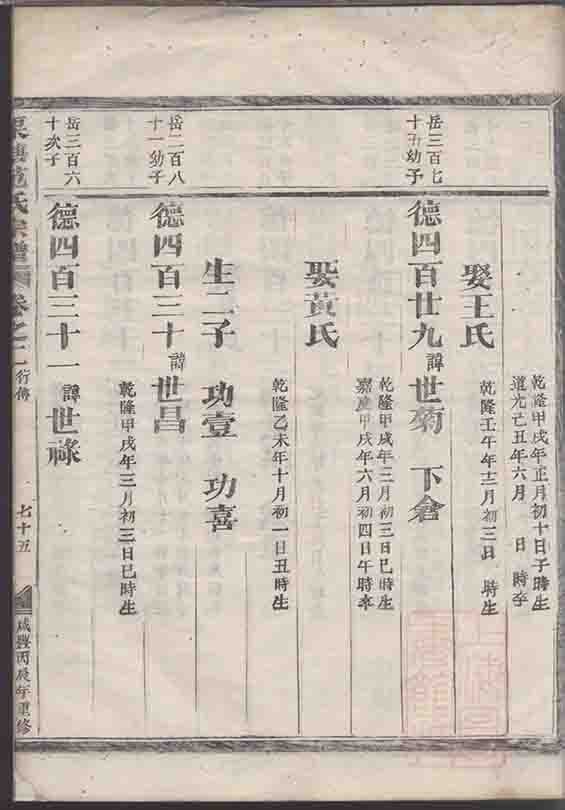 乾隆甲戌年正月初十日子時生
道光己丑年六月 日 時卒
娶王氏
乾隆壬午年十二月初三日 時生
岳三百七
十五幼子
德四百廿九諱世菊 下倉
乾隆甲戌年三月初三日巳時生
嘉慶甲戌年六月初四日午時卒
娶黃氏
乾隆乙未年十月初一日丑時生
生二子 功壹 功喜
岳二百八
十一幼子
德四百三十諱世昌
乾隆甲戌年三月初三日巳時生
岳三百六
十次子
德四百三十一諱世祿
范氏宗譜 卷之二 行傳 七十五 咸豐丙辰年重修